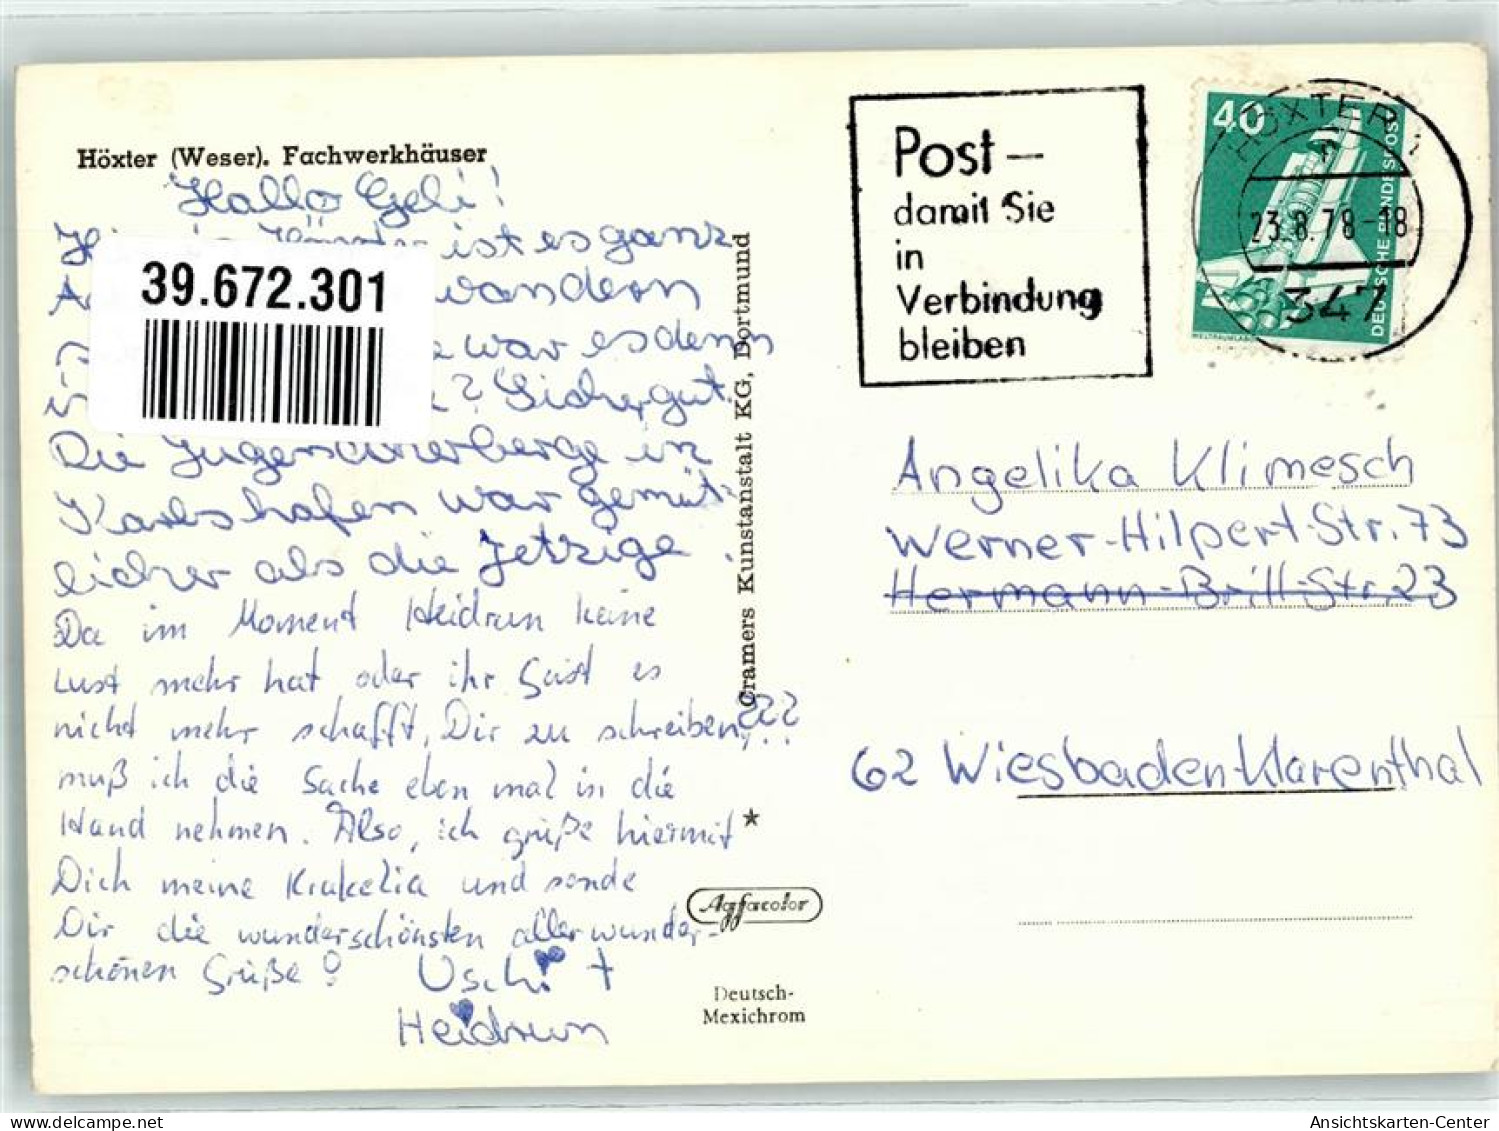 Höxter (Weser). Fachwerkhäuser
Hallo Geli!
ist es ganz
wandern
war es denn
? Sicher gut.
Die Jugendherberge in
Karlshafen war gemüt-
licher als die Jetzige.
Da im Moment Heidrun keine
Lust mehr hat oder ihr Geist es
nicht mehr schafft, Dir zu schreiben,???
muß ich die Sache eben mal in die
Hand nehmen. Also, ich grüße hiermit
Dich meine Krakelia und sende
Dir die wunderschönsten allerwunder-
schönen Grüße!
Uschi +
Heidrun
39.672.301
Cramers Kunstanstalt KG, Dortmund
*
Agfacolor
Deutsch-
Mexichrom
Post –
damit Sie
in
Verbindung
bleiben
40
DEUTSCHE BUNDESPOST
WELTRAUMLABOR
HÖXTER 1
23.8.78-18
347
Angelika Klimesch
Werner-Hilpert-Str. 73
Hermann-Brill-Str. 23
62 Wiesbaden-Klarenthal
https://www.delcampe.net
Ansichtskarten-Center